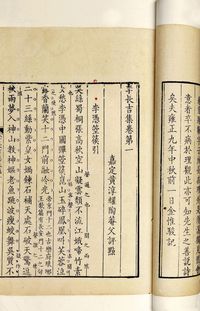 意者卒不病於理觀此亦可知先生之善說詩
矣夫雍正九年中秋前一日金惟駿記
李長吉集卷第一
嘉定黃淳耀陶菴父評點
李憑箜篌引
吳絲蜀桐張高秋空山凝雲頹不流江娥啼竹素
女愁李憑中國彈箜篌崑山玉碎鳳凰叫芙蓉泣
露香蘭笑十二門前融冷光
二十三絲動紫皇女媧鍊石補天處石破天驚逗
秋雨夢入神山教神嫗老魚跳波瘦蛟舞吳質不